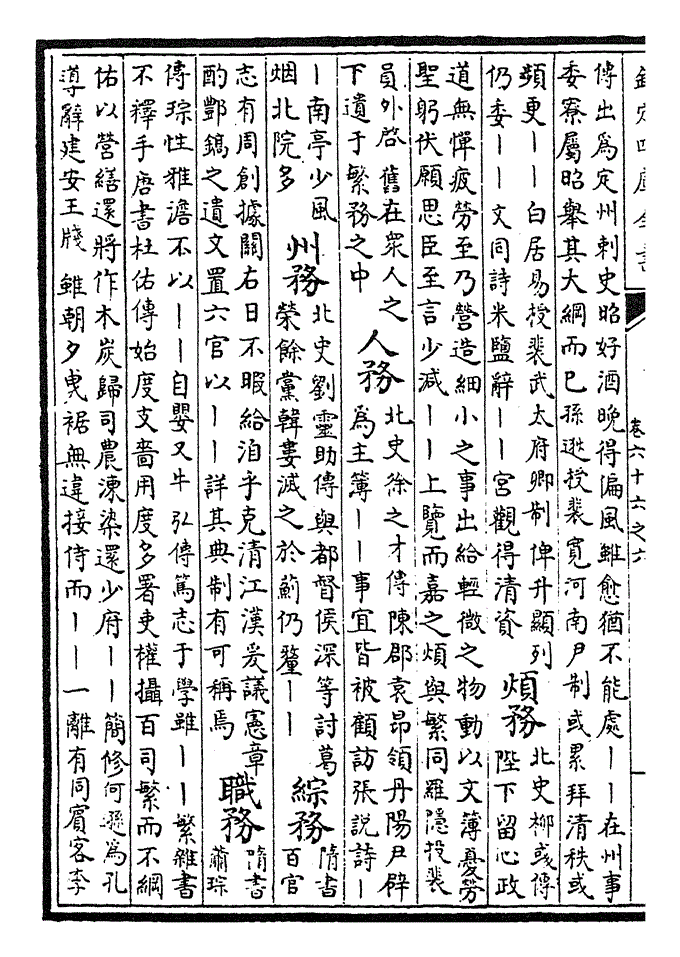 欽定四庫全書
卷六十六之六
傳出爲定州刺史昭好酒晚得偏風雖愈猶不能處——在州事
委寮屬昭舉其大綱而已孫逖授裴寛河南尹制或累拜清秩或
頻更——白居易授裴武太府卿制俾升顯列
仍委——文同詩米鹽辭——宮觀得清資
煩務
北史柳彧傳
陛下留心政
道無憚疲勞至乃營造細小之事出給輕微之物動以文薄憂勞
聖躬伏願思臣至言少減——上覽而嘉之煩與繁同羅隱投裴
員外啓舊在衆人之
下遺于繁務之中
人務
北史徐之才傳陳郡袁昂領丹陽尹辟
爲主簿——事宜皆被顧訪張説詩—
—南亭少風
烟北院多
州務
北史劉靈助傳與都督侯深等討葛
榮餘黨韓婁滅之於薊仍釐——
綜務
隋書
百官
志有周創據關右日不暇給洎乎克清江漢爰議憲章
酌酆鎬之遺文置六官以——詳其典制有可稱焉
職務
隋書
蕭琮
傳琮性雅澹不以——自嬰又牛弘傳篤志于學雖——繁雜書
不釋手唐書杜佑傳始度支嗇用度多署吏權攝百司繁而不綱
佑以營繕還將作木炭歸司農湅染還少府——簡修何遜爲孔
導辭建安王牋 雖朝夕曳裾無違接侍而——一離有同賔客李